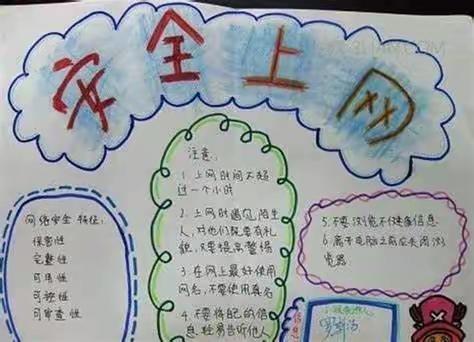 安全上网
网络安全 特征:
保密性
完整性
可用性
可控性
可审查性
注意:
1. 上网时间不超
过一个小时
2. 上网时遇见陌生
人,对他们既要有礼
貌,又要提高警惕
3. 在网上最好使用
网名,不要使用真名
4. 不要将自己的信
息轻易告诉他人
5. 不要浏览不健康信息
6. 离开电脑之前应关闭浏
览器
信息